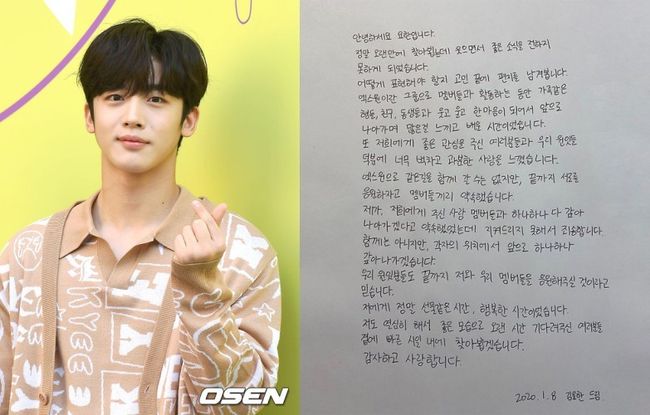 안녕하세요 요한입니다.
정말 오랜만에 찾아뵙는데 웃으면서 좋은 소식을 전하지
못하게 되었습니다.
어떻게 표현해야 할지 고민 끝에 편지를 남겨봅니다.
엑스원이란 그룹으로 멤버들과 활동하는 동안 가족같은
형들, 친구, 동생들과 웃고 울고 한마음이 되어서 앞으로
나아가며 많은걸 느끼고 배운 시간이었습니다.
또 저희에게 좋은 관심을 주신 여러분들과 우리 원잇들
덕분에 너무 벅차고 과분한 사랑을 느꼈습니다.
엑스원으로 같은길을 함께 갈 수는 없지만, 끝까지 서로를
응원하자고 멤버들끼리 약속했습니다.
제가 저희에게 주신 사랑 멤버들과 하나하나 다 갚아
나아가겠다고 약속했었는데 지켜드리지 못해서 죄송합니다.
함께는 아니지만, 각자의 위치에서 앞으로 하나하나
갚아나가겠습니다.
우리 원잇분들도 끝까지 저와 우리 멤버들을 응원해주실 것이라고
믿습니다.
저에게 정말 선물같은 시간, 행복한 시간이었습니다.
저도 열심히 해서 좋은 모습으로 오랜 시간 기다려주신 여러분들
곁에 빠른 시일 내에 찾아뵙겠습니다.
감사하고 사랑합니다.
2020. 1. 8 김요한 드림
OSEN